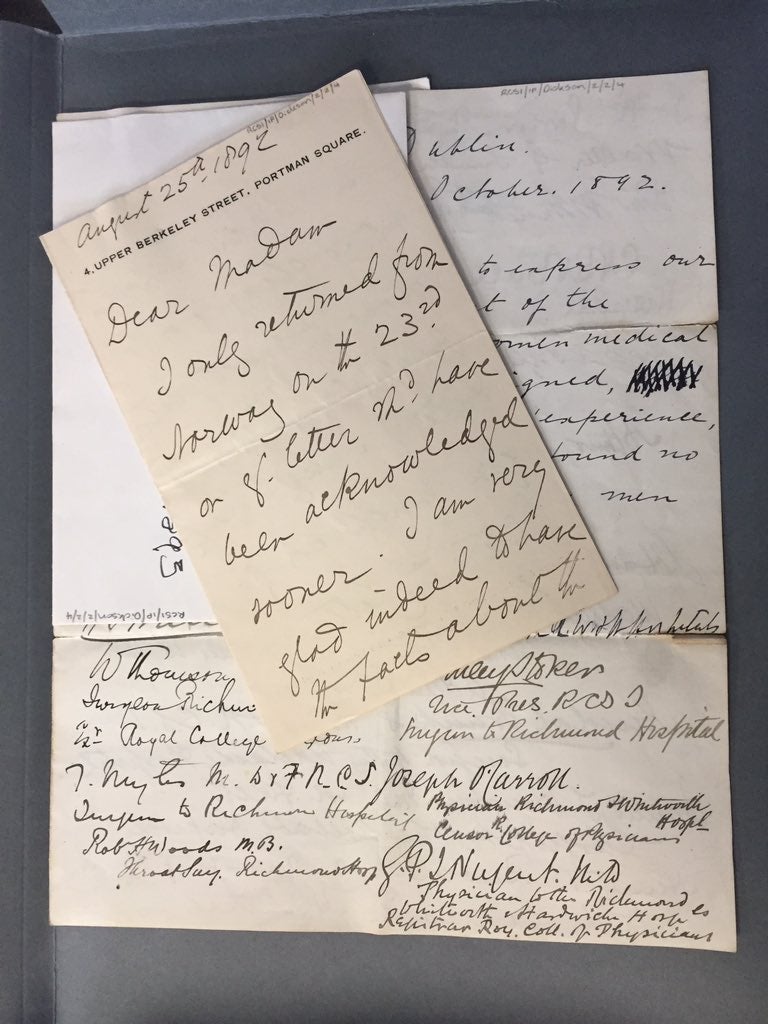 RCSI/IP/Dickson/2/2/4
August 25th 1892
4, UPPER BERKELEY STREET, PORTMAN SQUARE.
Dear Madam
I only returned from
Norway on th 23rd
or yr. letter shd. have
been acknowledged
sooner. I am very
glad indeed to have
th facts about th
RCSI/IP/Dickson/2/2/4
Dublin.
October. 1892.
to express our
t of the
omen medical
igned,
experience,
found no
men
Hospitals
RCSI/IP/Dickson/2/2/4
W Thomson
Surgeon Richm
Royal College
T. Myles M.D & F.R.C.S.
Surgeon to Richmond Hospital
Robt H Woods MB.
Throat Surg. Richmond Hosp
Stoker
Vice Pres. RCSI
Surgeon to Richmond Hospital
Joseph O'Carroll.
Physician Richmond & Whitworth
Hospl
Censor R College of Physicians
G. P. L Nugent. MD
Physician to the Richmond
Whitworth & Hardwicke Hospls
Registrar Roy. Coll. of Physicians